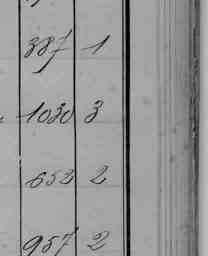 387 1
1030 3
652 2
957 2